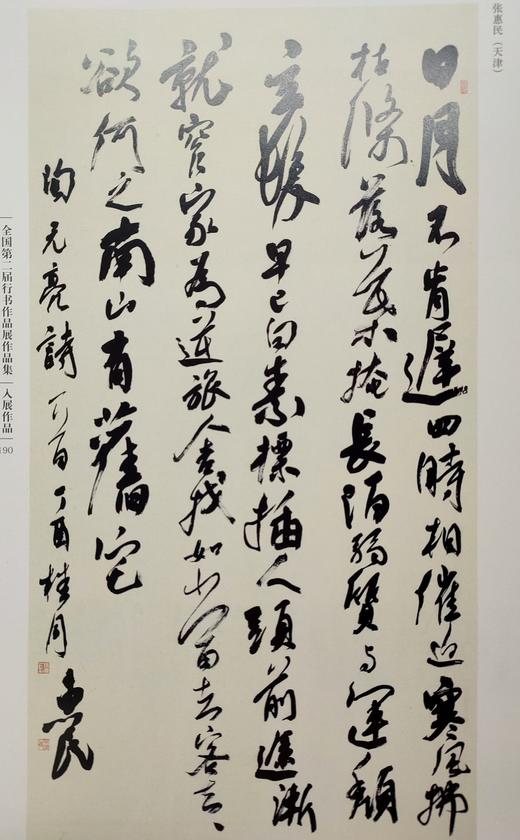 张惠民（天津）
日月不肯遲四時相催迫寒風拂
枯條落葉掩長陌弱質与運頹
玄鬢早已白素標插人頭前途漸
就窄家為逆旅舍我如當去客去々
欲何之南山有舊宅
陶元亮詩一首丁酉桂月
惠民
全国第二届行书作品展作品集 | 入展作品
190